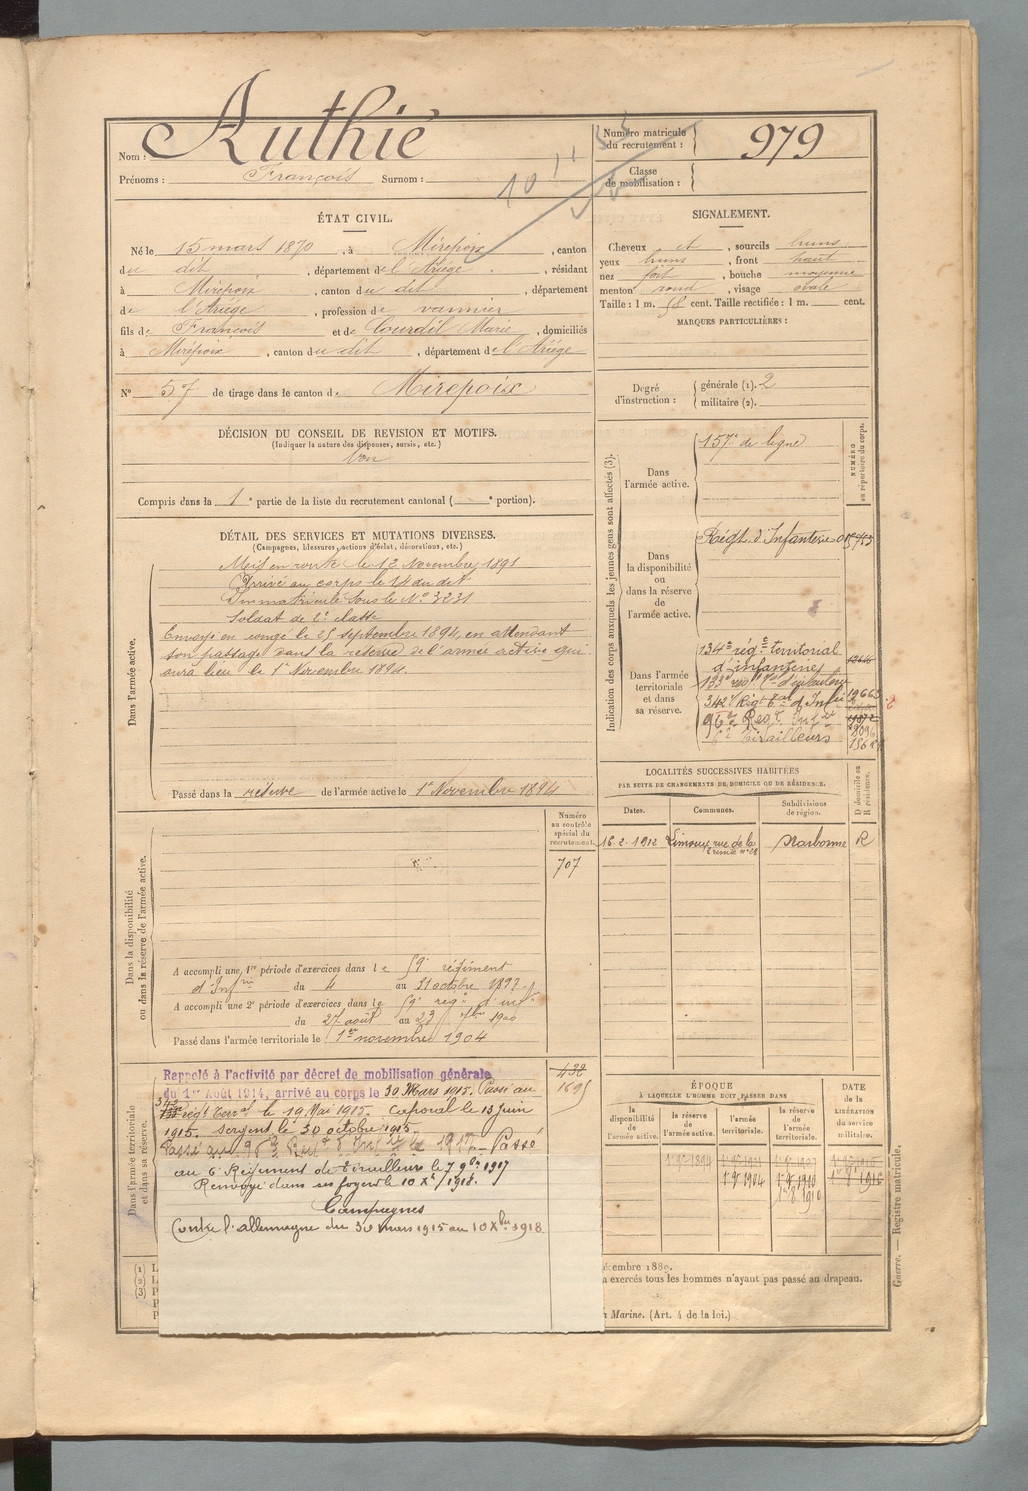 Nom : Authié
Prénoms : François Surnom :
Numéro matricule du recrutement : 979
Classe de mobilisation :
ÉTAT CIVIL.
Né le 15 mars 1870, à Mirepoix, canton
du dit, département de l'Ariège, résidant
à Mirepoix, canton du dit, département
de l'Ariège, profession de vannier
fils de François et de Courdil Marie, domiciliés
à Mirepoix, canton du dit, département de l'Ariège
N° 57 de tirage dans le canton de Mirepoix
DÉCISION DU CONSEIL DE REVISION ET MOTIFS.
(Indiquer la nature des dispenses, sursis, etc.)
Bon
Compris dans la 1e partie de la liste du recrutement cantonal ( e portion).
SIGNALEMENT.
Cheveux et, sourcils bruns
yeux bruns, front haut
nez fort, bouche moyenne
menton rond, visage ovale
Taille : 1 m. 58 cent. Taille rectifiée : 1 m. cent.
MARQUES PARTICULIÈRES :
Degré d'instruction : générale (1). 2
militaire (2).
DÉTAIL DES SERVICES ET MUTATIONS DIVERSES.
(Campagnes, blessures, actions d'éclat, décorations, etc.)
Dans l'armée active.
Mis en route le 12 Novembre 1891
Arrivé au corps le 14 du dit
Immatriculé sous le N° 3231
Soldat de 2e classe
Envoyé en congé le 25 septembre 1894, en attendant
son passage dans la réserve de l'armée active qui
aura lieu le 1er Novembre 1894.
Passé dans la réserve de l'armée active le 1er Novembre 1894
Indication des corps auxquels les jeunes gens sont affectés (3).
NUMÉRO au répertoire du corps.
Dans l'armée active.
157e de ligne
Dans la disponibilité ou dans la réserve de l'armée active.
Régt. d'Infanterie
Dans l'armée territoriale et dans sa réserve.
134e régt territorial
d'infanterie
342e Régt d'Infie
96e Regt Infie
6e Tirailleurs
LOCALITÉS SUCCESSIVES HABITÉES
PAR SUITE DE CHANGEMENTS DE DOMICILE OU DE RÉSIDENCE.
Dates. Communes. Subdivisions de région. D domicile ou R résidence.
16.2.1912 Limoux, rue de la Narbonne R
Dans la disponibilité ou dans la réserve de l'armée active.
Numéro au contrôle spécial du recrutement.
707
A accompli une 1re période d'exercices dans le 59e régiment
d'Infrie du 4 au 31 octobre 1897
A accompli une 2e période d'exercices dans le 59e regt d'infie
du 27 août au 23 7bre 1900
Passé dans l'armée territoriale le 1er novembre 1904
Dans l'armée territoriale et dans sa réserve.
432
1695
Rappelé à l'activité par décret de mobilisation générale
du 1er Août 1914, arrivé au corps le 30 Mars 1915. Passé au
342 régt Terral le 19 Mai 1915. Caporal le 13 Juin
1915. Sergent le 30 octobre 1915.
Passé au 96e Régt Infie le 1917. Passé
au 6e Régiment de Tirailleurs le 7 9bre 1917
Renvoyé dans ses foyers le 10 Xbre 1918.
Campagnes
Contre l'Allemagne du 30 mars 1915 au 10 Xbre 1918.
ÉPOQUE
À LAQUELLE L'HOMME DOIT PASSER DANS
la disponibilité de l'armée active. la réserve de l'armée active. l'armée territoriale. la réserve de l'armée territoriale. DATE de la LIBÉRATION du service militaire.
1er 9bre 1894
1er 9bre 1904 1er 9bre 1910 1er 9bre 1916
(1) L
(2) L
(3) P
P
P
écembre 1889.
a exercés tous les hommes n'ayant pas passé au drapeau.
Marine. (Art. 4 de la loi.)
Guerre. — Registre matricule.